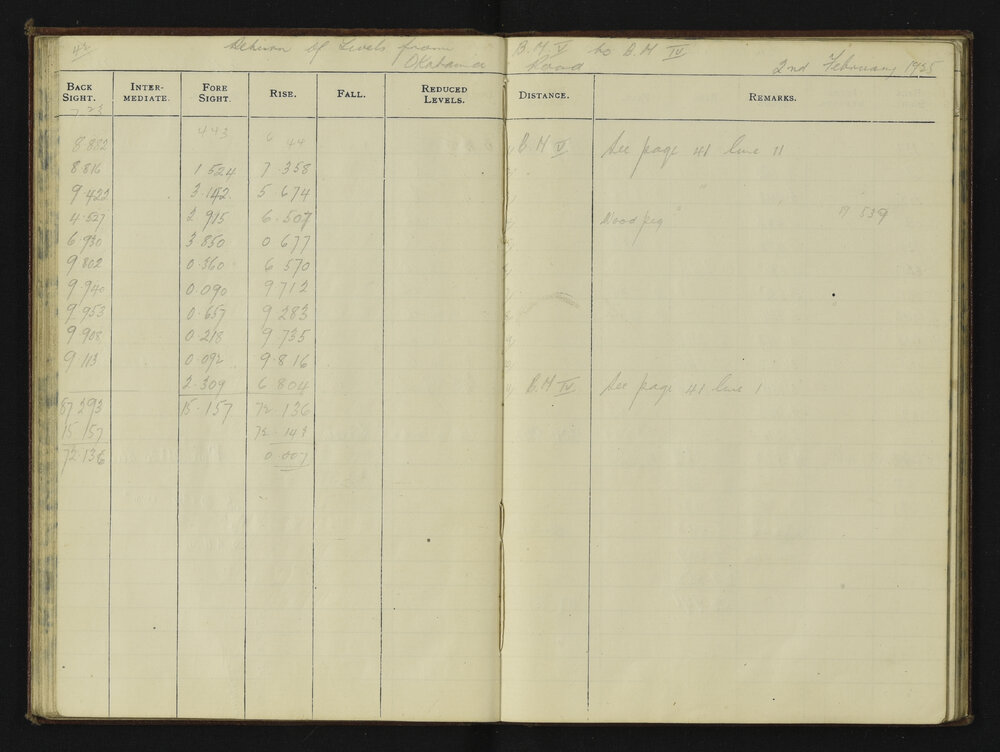 42 Return of Levels from B.M V to B.M IV
Okahandja Road 2nd February 1925
BACK SIGHT. INTER-MEDIATE. FORE SIGHT. RISE. FALL. REDUCED LEVELS. DISTANCE. REMARKS.
7.23
4 43 6 44
8 882 B.M V See page 41 line 11
8.816 1 524 7.358
9.422 3.142 5 674
4.527 2 915 6.507 Wood peg 19 539
6 930 3 850 0 677
9 802 0.360 6 570
9 940 0.090 9 712
9 953 0.657 9 283
9 908 0.218 9 735
9 113 0 092 9.816
2.309 6 804 B.M IV See page 41 line 1
87 293 15.157 72.136
15 157 72.143
72 136 0.007